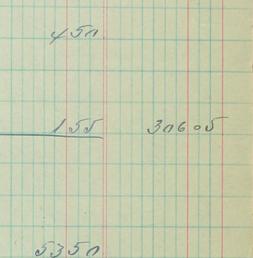 450
155 30605
5350